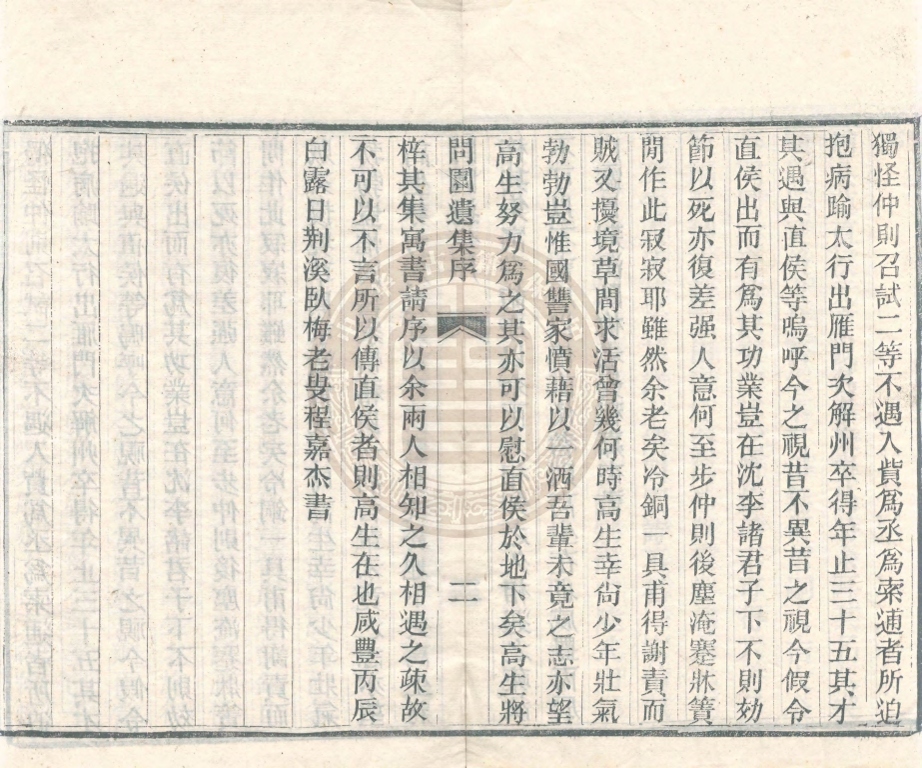 獨怪仲則召試二等不遇入貲爲丞爲索逋者所迫
抱病踰太行出雁門次解州卒得年止三十五其才
其遇與直侯等嗚呼今之視昔不異昔之視今假令
直侯出而有爲其功業豈在沈李諸君子下不則効
節以死亦復差强人意何至步仲則後塵淹蹇牀簀
閒作此寂寂耶雖然余老矣冷銅一具甫得謝責而
賊又擾境草間求活曾幾何時高生幸尙少年壯氣
勃勃豈惟國讐家憤藉以一洒吾輩未竟之志亦望
高生努力爲之其亦可以慰直侯於地下矣高生將
問園遺集序 二
梓其集寓書請序以余兩人相知之久相遇之疎故
不可以不言所以傳直侯者則高生在也咸豐丙辰
白露日荆溪臥梅老叟程嘉杰書